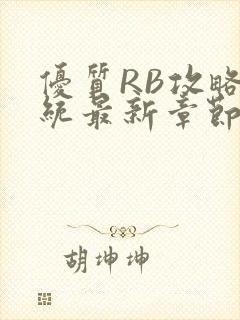 優質RB攻略
統最新章節
胡坤坤